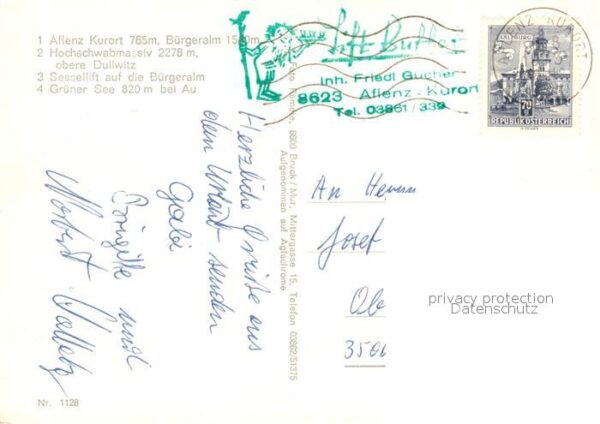 1 Aflenz Kurort 765m, Bürgeralm
2 Hochschwabmassiv 2278 m,
obere Dullwitz
3 Sessellift auf die Bürgeralm
4 Grüner See 820 m bei Au
Inh. Friedl Gucher
8623 Aflenz - Kurort
Tel. 03861 / 339
AFLENZ KURORT
SALZBURG
REPUBLIK ÖSTERREICH
8600 Bruck / Mur, Mittergasse 15, Telefon 03862/51375
Aufgenommen auf Agfachrome
Herzliche Grüße aus
dem Urlaub senden
Gabi
Brigitte und
Norbert
An Herrn
Josef
Ob
350
privacy protection
Datenschutz
Nr. 1128